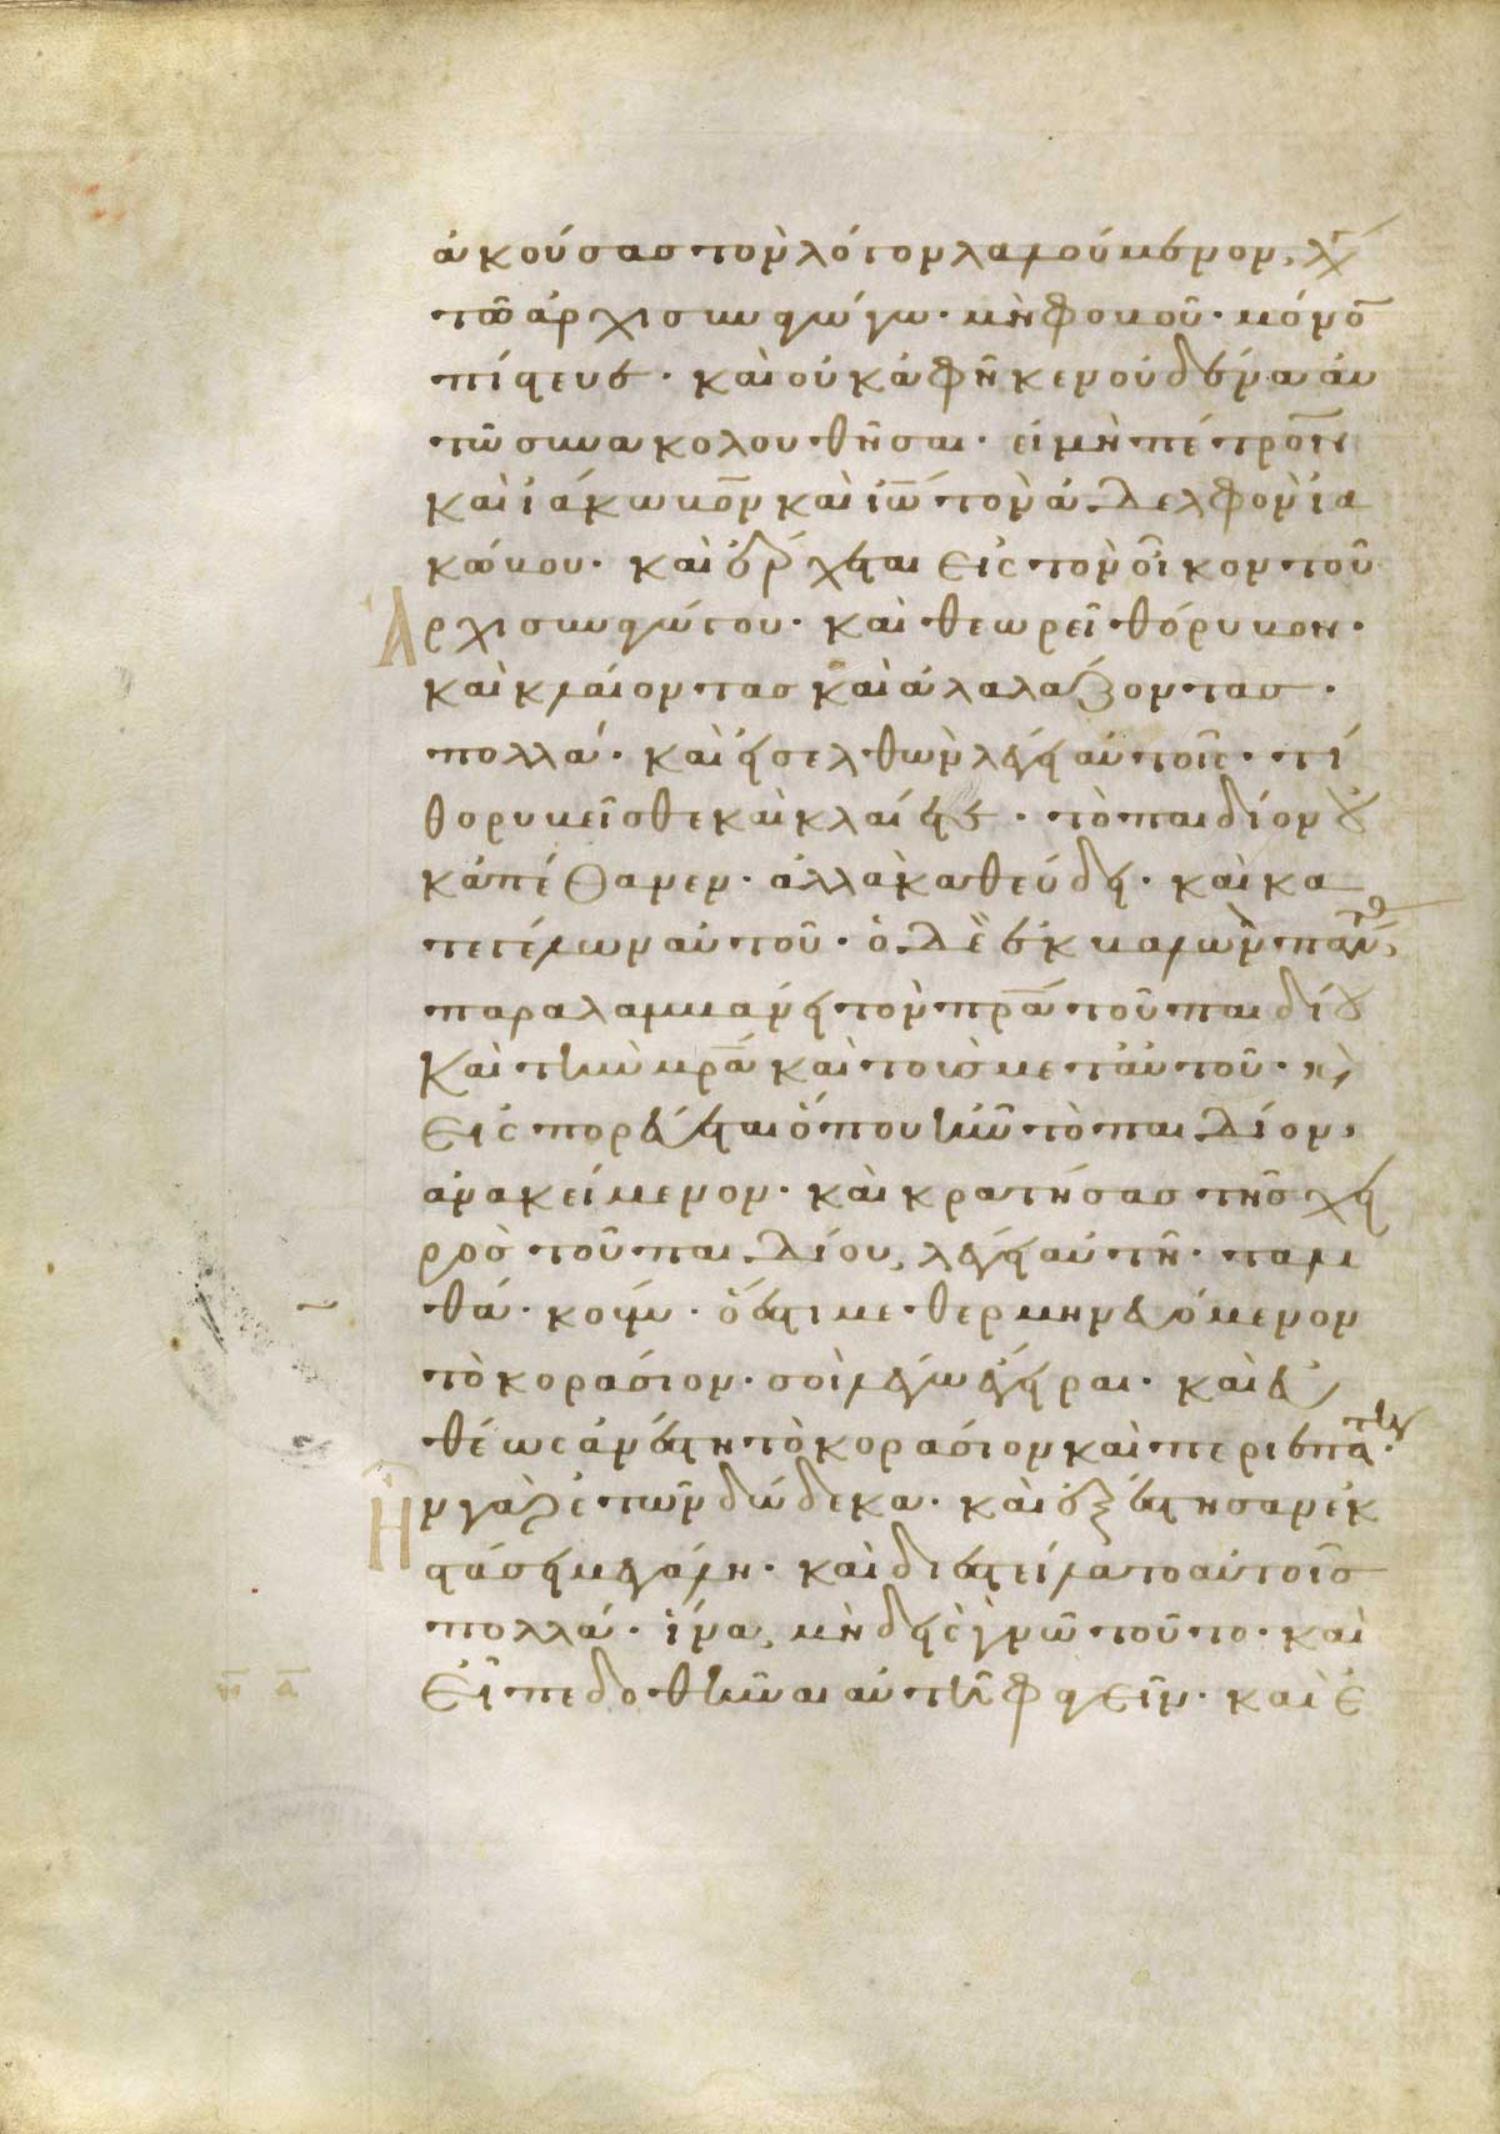 ἀκούσας τὸν λόγον λαλούμενον, λέγ
τῶ ἀρχισυναγώγω· μὴ φοβοῦ· μόνο̄
πίστευε· καὶ οὐκ ἀφῆκεν οὐδένα αὐ
τῶ συνακολουθῆσαι· εἰ μὴ πέτρο̄ν
καὶ ἰάκωβο̄ν καὶ ἰω̄ τὸν ἀδελφὸν ἰα
κώβου· καὶ ἔρχεται εἰς τὸν οἶκον τοῦ
Ἀρχισυναγώγου· καὶ θεωρεῖ θόρυβον·
καὶ κλαίοντας καὶ ἀλαλάζοντας·
πολλά· καὶ εἰσελθὼν λέγει αὐτοῖς· τί
θορυβεῖσθε καὶ κλαίετε· τὸ παιδίον οὐ
κ ἀπέθανεν· ἀλλὰ καθεύδει· καὶ κα
τεγέλων αὐτοῦ· ὁ δὲ ἐκβαλὼν παντ,
παραλαμβάνει τὸν πρ̄α τοῦ παιδίου
Καὶ τὴν μρ̄α καὶ τοὺς μετ' αὐτοῦ· κ
Εἰσπορεύεται ὅπου ἦν τὸ παιδίον,
ἀνακείμενον· καὶ κρατήσας τῆς χει
ρὸς τοῦ παιδίου, λέγει αὐτῆ· ταλι
θά· κούμ· ὅ ἐστι μεθερμηνευόμενον
τὸ κοράσιον· σοὶ λέγω ἔγειραι· καὶ εὐ
θέως ἀνέστη τὸ κοράσιον καὶ περιεπάτ·
Ἦν γὰρ ἐτῶν δώδεκα· καὶ ἐξέστησαν ἐκ
στάσει μεγάλη· καὶ διεστείλατο αὐτοῖς
πολλά· ἵνα, μηδεὶς γνῶ τοῦτο· καὶ
Εἶπε δοθῆναι αὐτῆ φαγεῖν· καὶ ἐ